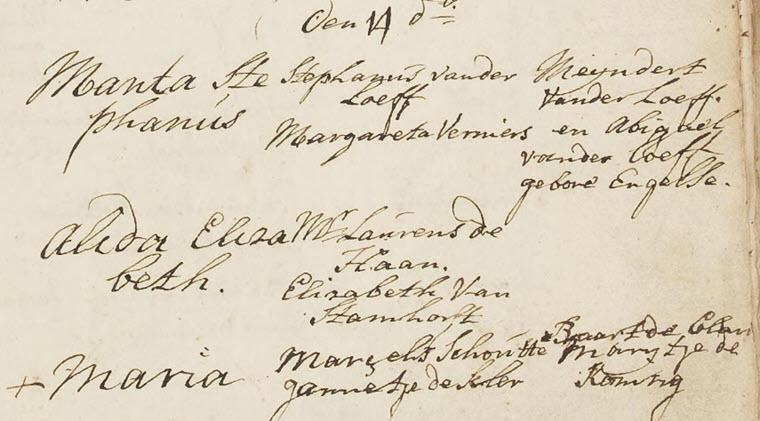 Den 14 do
Manta Ste
phanus
Stephanus vander
Loeff
Margareta Verniers
Meyndert
vander Loeff.
en Abigael
vander Loeff
gebore Engelse.
Alida Eliza
beth.
Mr Laurens de
Haan.
Elizabeth Van
Stamhorst
+ Maria
Marcelis Schoutte
gannetje de Kler
Baart de
Marijtje de
Koning